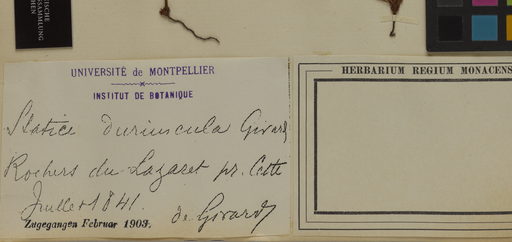 ISCHE
SSAMMLUNG
CHEN
UNIVERSITÉ de MONTPELLIER
INSTITUT DE BOTANIQUE
HERBARIUM REGIUM MONACENS
Statice duriuscula Girard
Rochers du Lazaret pr. Cette
Juillet 1841.
de Girard
Zugegangen Februar 1903.